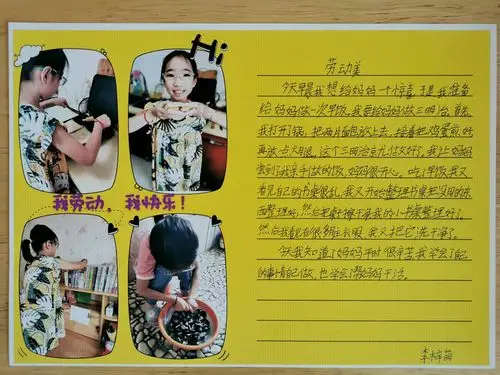 Hi
我劳动，我快乐！
劳动美
今天早晨我想给妈妈一个惊喜于是我准备
给妈妈做一次早饭,我要给妈妈做三明治.首先
我打开了锅,把两片面包放上去,接着把鸡蛋煎好
再放点火腿,这个三明治就做好了,我让妈妈
去了我亲手做的饭,妈妈很开心,吃了早饭我又
看见自己的书桌很乱,我又开始整理书桌把没用的东
西整理好,然后把擦干净我的小书桌整理好了
然后我看见有很多脏衣服,我又把它洗干净了.
今天我知道了妈妈平时很辛苦我学会了自己
的事情自己做,也学会了帮妈妈干活.
李梓萌